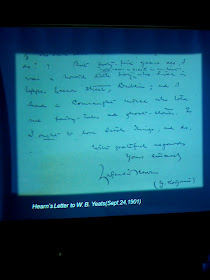 But forty-five years ago, I
was a horrid little boy,
Upper Leeson Street, Dublin; and I
had a Connaught nurse who told
me fairy-tales and ghost-stories. So
I ought to love Irish Things, and do.
With grateful regards
Yours sincerely
Lafcadio Hearn
(Y. Koizumi)
Hearn's Letter to W. B. Yeats(Sept.24,1901)